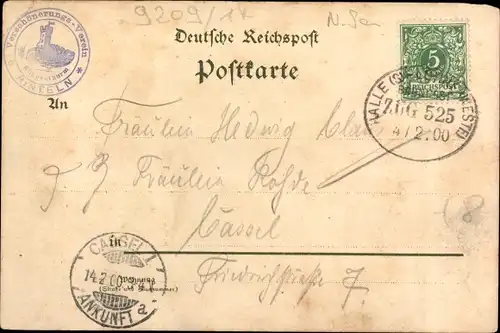 9209/14
Verschönerungs-Verein
RINTELN
Deutsche Reichspost
Postkarte
5
REICHSPOST
HALLE
ZUG 525
4/2.00
An
Fräulein Hedwig
Fräulein Rohde
in
Cassel
CASSEL 1
14.2.00
ANKUNFT
Wohnung
(Straße und Hausnummer)
Friedrichstraße 7.